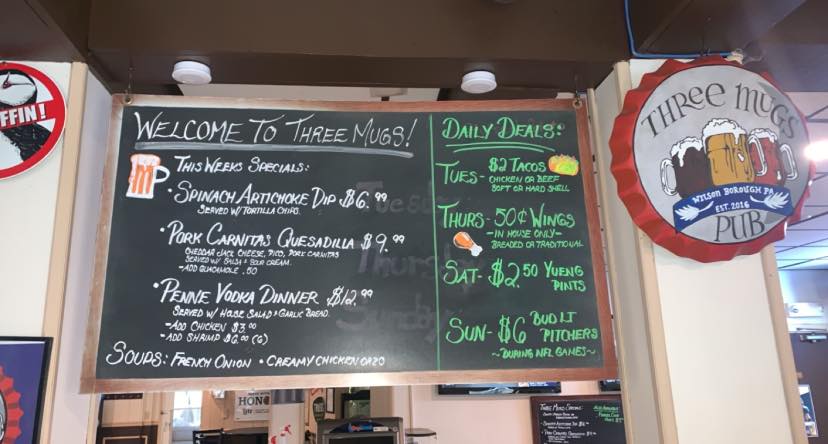 FFIN!
WELCOME TO THREE MUGS!
THIS WEEKS SPECIALS:
• SPINACH ARTICHOKE DIP $6.99
SERVED W/ TORTILLA CHIPS.
• PORK CARNITAS QUESADILLA $9.99
CHEDDAR JACK CHEESE, PICO, PORK CARNITAS
SERVED W/ SALSA & SOUR CREAM.
-ADD GUACAMOLE .50
• PENNE VODKA DINNER $12.99
SERVED W/ HOUSE SALAD & GARLIC BREAD.
-ADD CHICKEN $3.00
-ADD SHRIMP $6.00 (6)
SOUPS: FRENCH ONION • CREAMY CHICKEN ORZO
DAILY DEALS:
TUES- $2 TACOS
CHICKEN OR BEEF
SOFT OR HARD SHELL
THURS- 50¢ WINGS
-IN HOUSE ONLY-
BREADED OR TRADITIONAL
SAT- $2.50 YUENG
PINTS
SUN- $6 BUD LT
PITCHERS
~DURING NFL GAMES~
THREE MUGS
WILSON BOROUGH PA
EST. 2016
PUB
HONO
THREE MUGS SPECIALS: